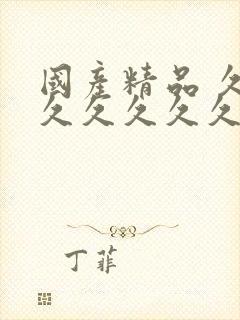 國産精品 久
久久久久久
丁菲